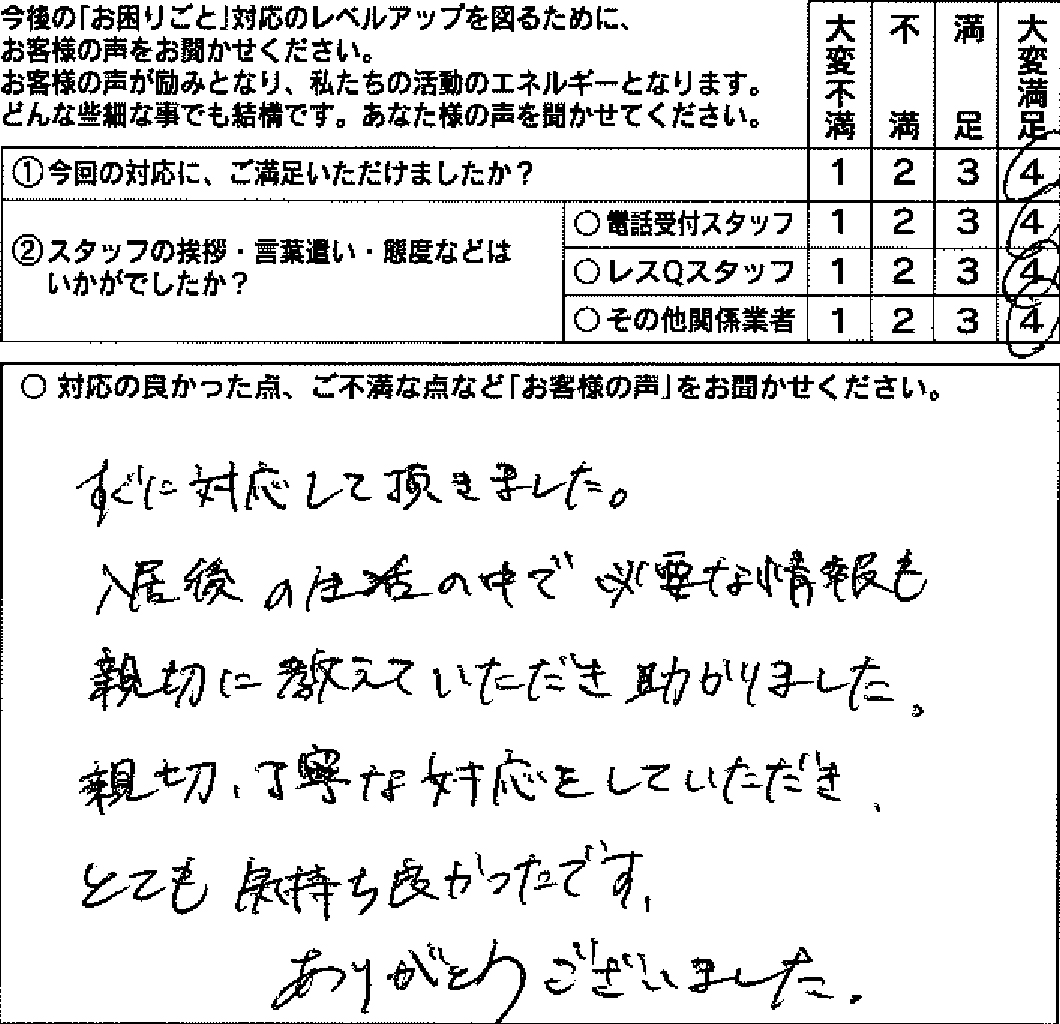 今後の「お困りごと」対応のレベルアップを図るために、
お客様の声をお聞かせください。
お客様の声が励みとなり、私たちの活動のエネルギーとなります。
どんな些細な事でも結構です。あなた様の声を聞かせてください。
大変不満 不満 満足 大変満足
①今回の対応に、ご満足いただけましたか？ 1 2 3 4
②スタッフの挨拶・言葉遣い・態度などは
いかがでしたか？
○電話受付スタッフ 1 2 3 4
○レスQスタッフ 1 2 3 4
○その他関係業者 1 2 3 4
○ 対応の良かった点、ご不満な点など「お客様の声」をお聞かせください。
すぐに対応して頂きました。
入居後の生活の中で必要な情報も
親切に教えていただき助かりました。
親切、丁寧な対応をしていただき、
とても気持ち良かったです、
ありがとうございました.